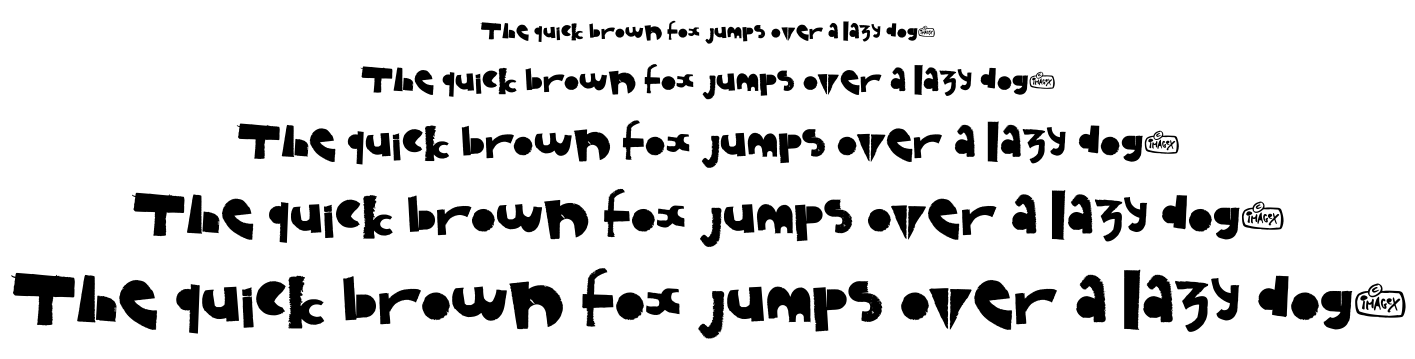 The quick brown fox jumps over a lazy dog © imagex
The quick brown fox jumps over a lazy dog © imagex
The quick brown fox jumps over a lazy dog © imagex
The quick brown fox jumps over a lazy dog © imagex
The quick brown fox jumps over a lazy dog © imagex